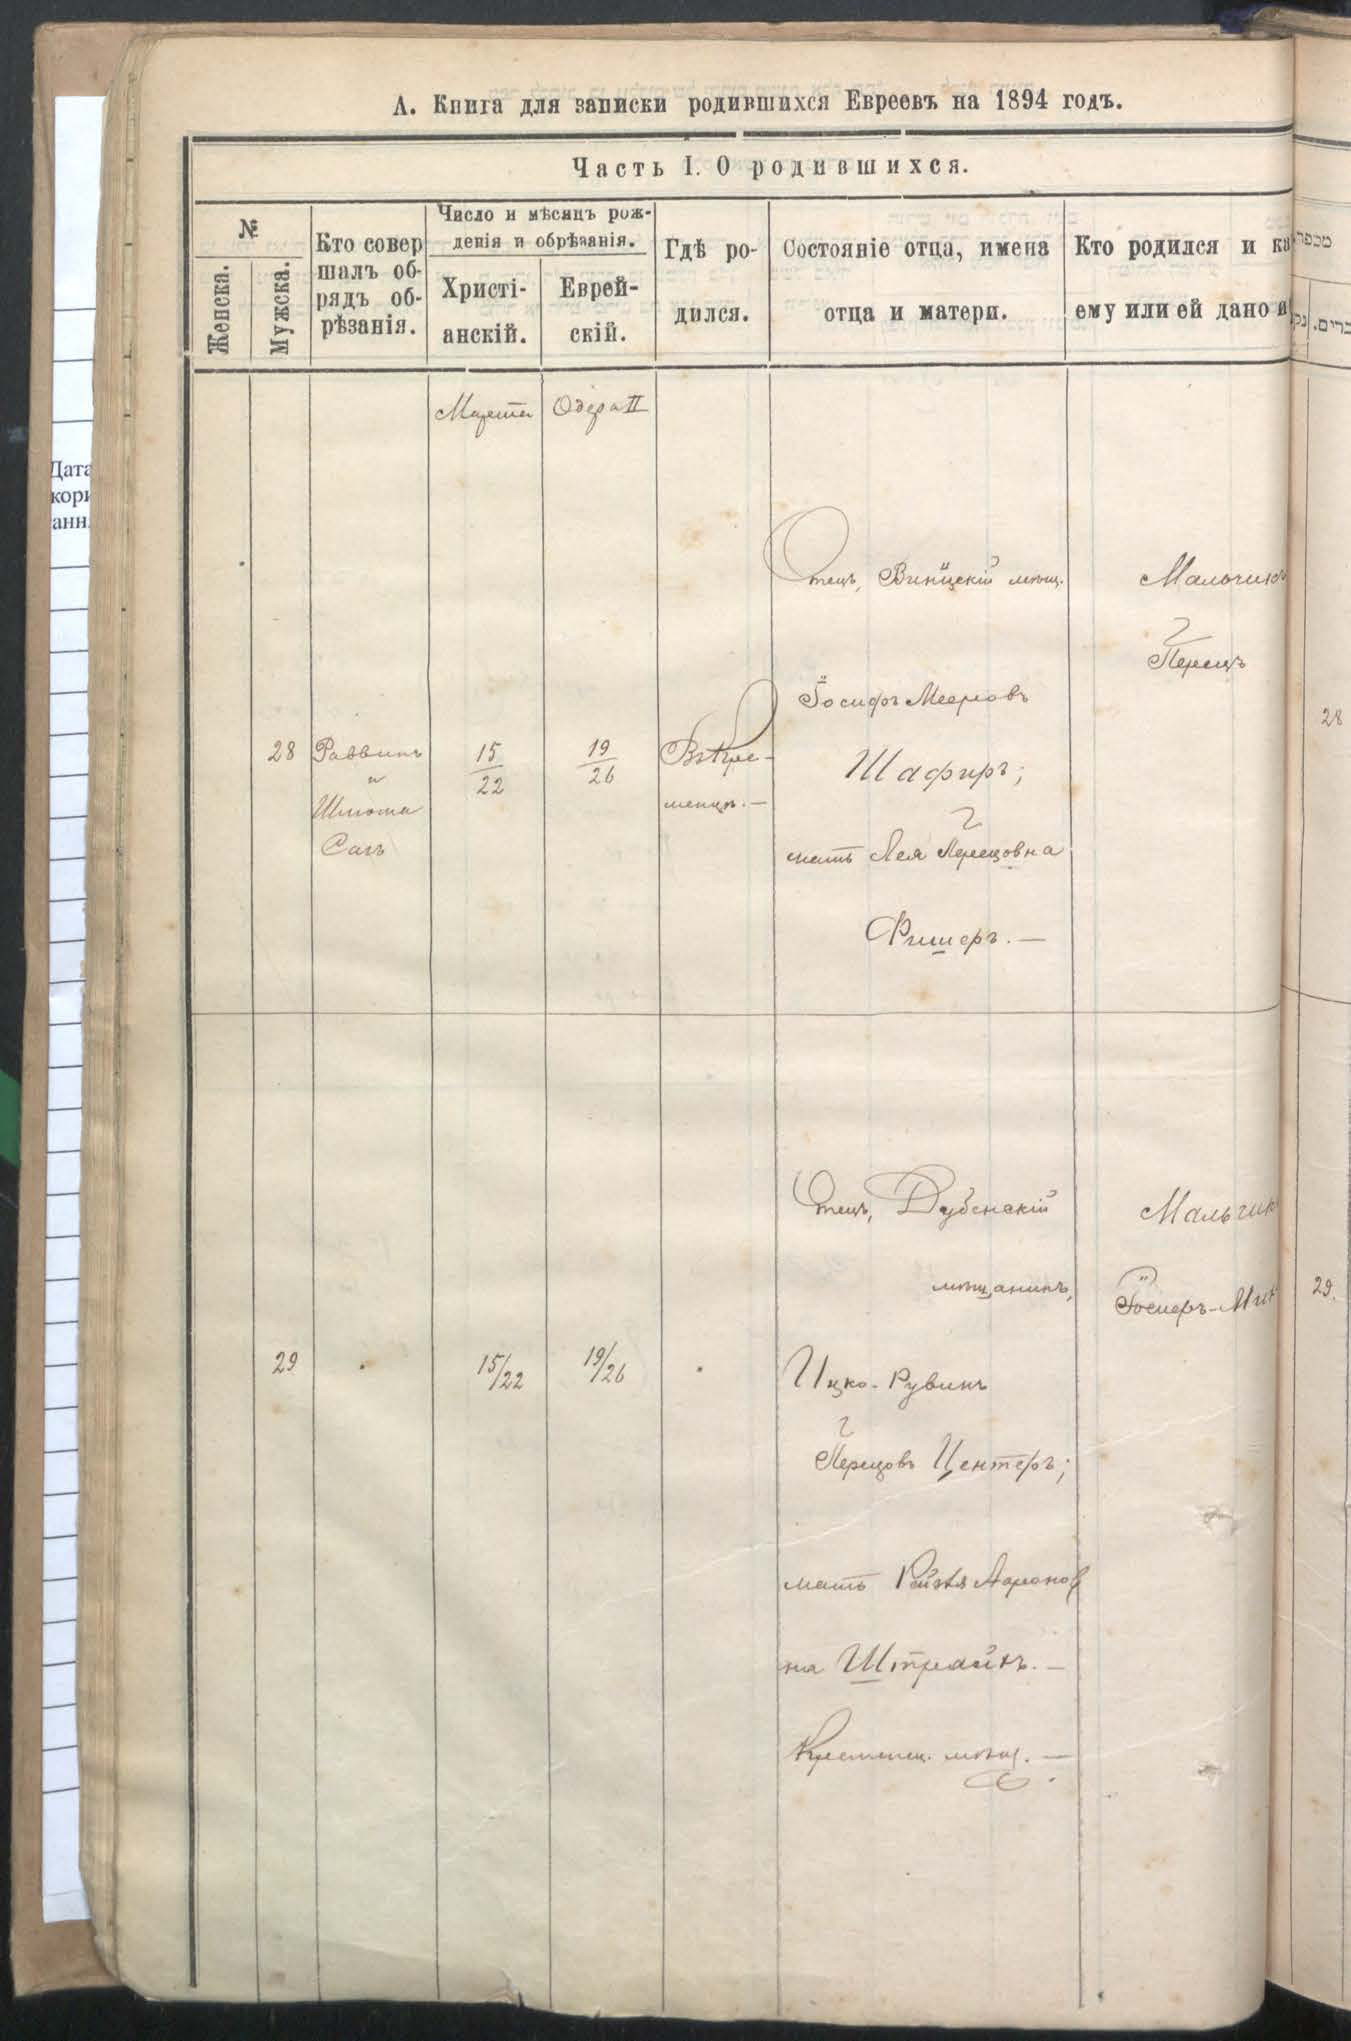 А. Книга для записки родившихся Евреевъ на 1894 годъ.
Часть I. О родившихся.
№
Женска.
Мужска.
Кто совер
шалъ об-
рядъ об-
рѣзанія.
Число и мѣсяцъ рож-
денія и обрѣзанія.
Христі-
анскій.
Еврей-
скій.
Гдѣ ро-
дился.
Состояніе отца, имена
отца и матери.
Кто родился и ка
ему или ей дано и
Марта
Одера II
28
Раввинъ
и
Шлиома
Сагъ
15
22
19
26
Въ Кре-
менцѣ. —
Отецъ, мѣщ.
Іосифъ Мееровъ
Шафиръ;
мать Лея Перецовна
Фишеръ. —
Мальчикъ
Перецъ
29
15/22
19/26
Отецъ, Дубенскій
мѣщанинъ,
Ицко-Рувинъ
Перецовъ Центеръ;
мать Рейзя Ааронов
на Штрайкъ. —
Кременец. мѣщ. —
Мальчик
28
29.
Дата
кори
анн